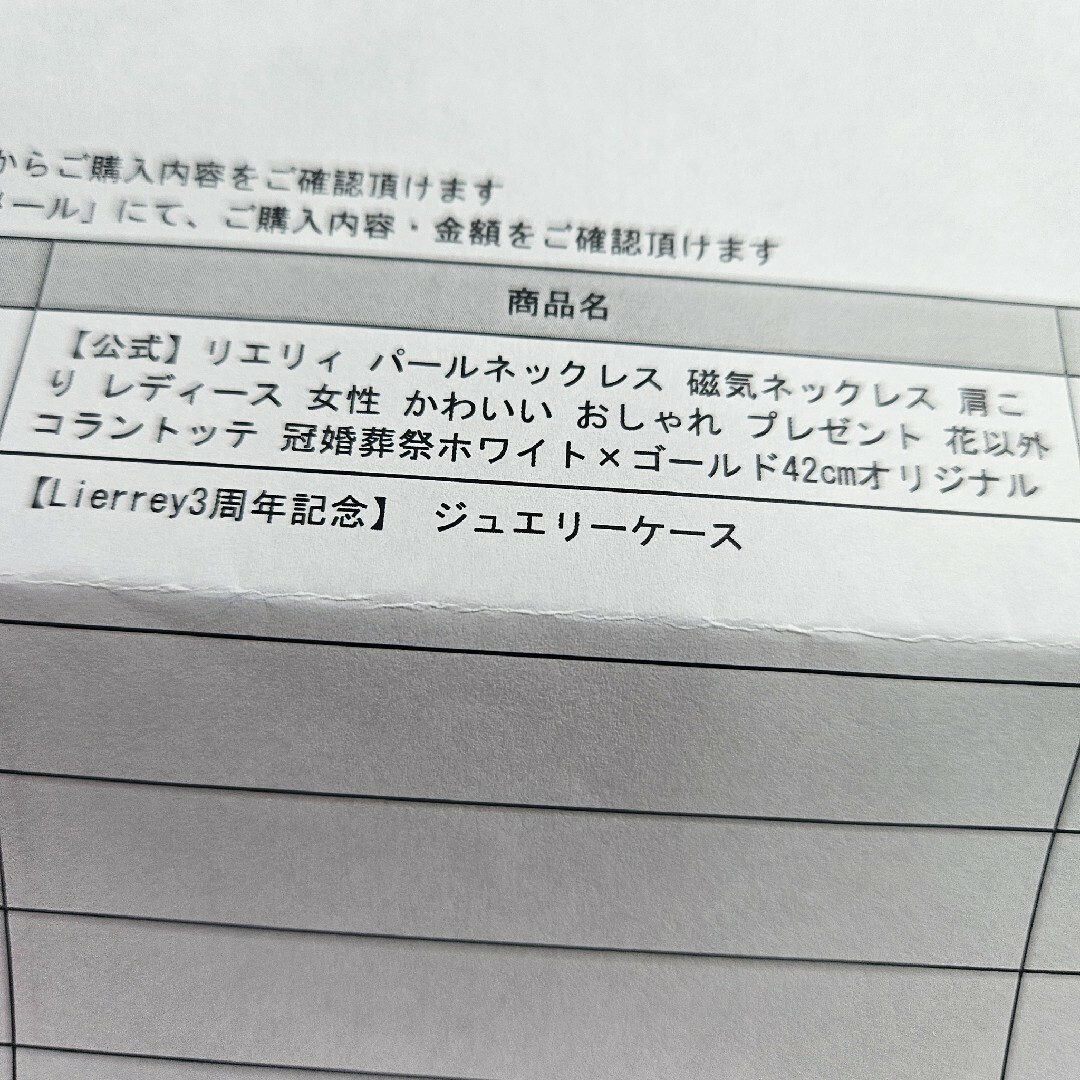 からご購入内容をご確認頂けます
メール」にて、ご購入内容・金額をご確認頂けます
商品名
【公式】リエリィ パールネックレス 磁気ネックレス 肩こ
り レディース 女性 かわいい おしゃれ プレゼント 花以外
コラントッテ 冠婚葬祭ホワイト×ゴールド42cmオリジナル
【Lierrey3周年記念】 ジュエリーケース